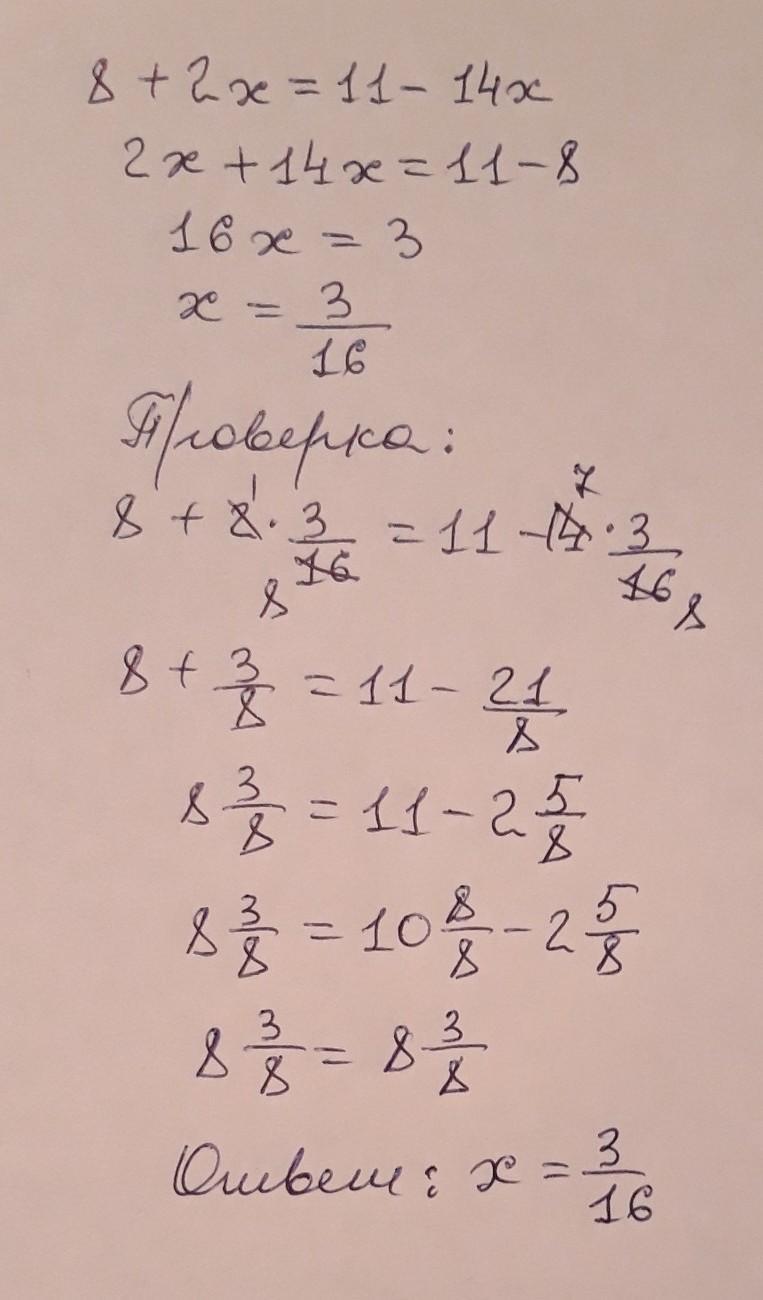 8 + 2x = 11 - 14x
2x + 14x = 11 - 8
16x = 3
x = 3/16
Проверка:
8 + 2 1 · 3/16 8 = 11 - 14 7 · 3/16 8
8 + 3/8 = 11 - 21/8
8 3/8 = 11 - 2 5/8
8 3/8 = 10 8/8 - 2 5/8
8 3/8 = 8 3/8
Ответ: x = 3/16